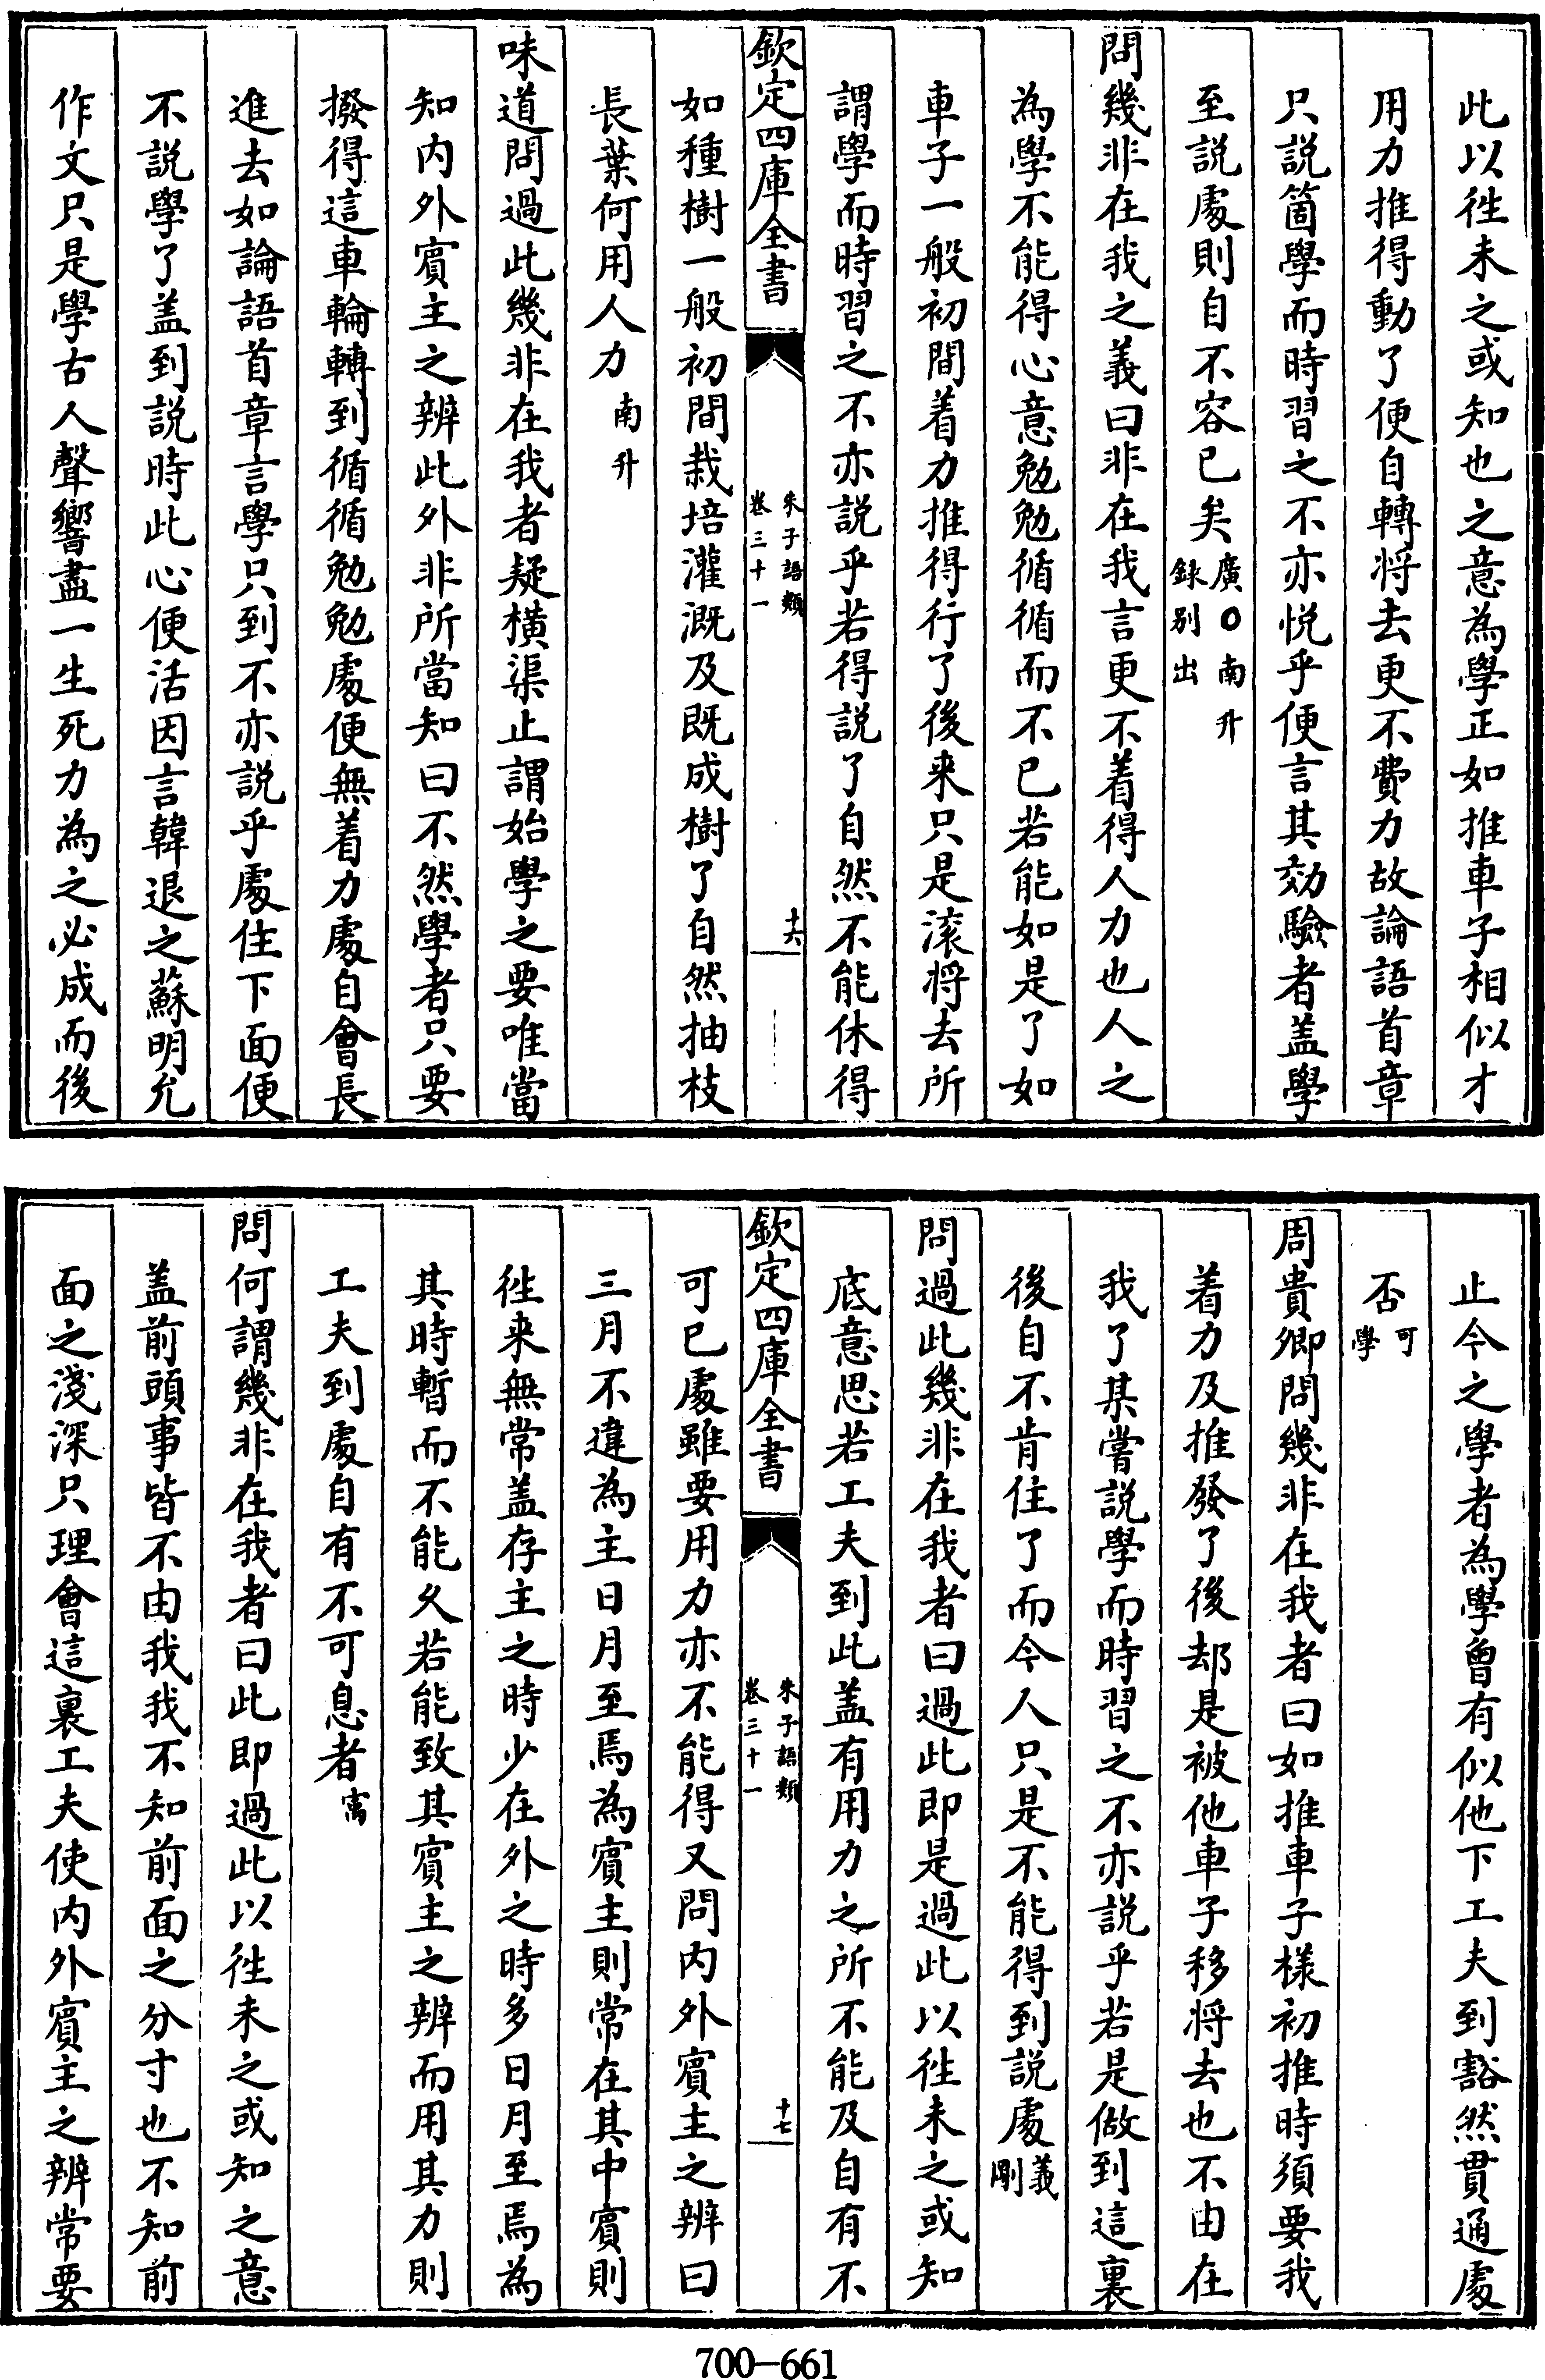 此以徃未之或知也之意為學正如推車子相似才
用力推得動了便自轉將去更不費力故論語首章
只説箇學而時習之不亦悦乎便言其効驗者盖學
至説處則自不容已矣廣○南升
録别出
問幾非在我之義曰非在我言更不着得人力也人之
為學不能得心意勉勉循循而不已若能如是了如
車子一般初間着力推得行了後来只是滚將去所
謂學而時習之不亦説乎若得説了自然不能休得
欽定四庫全書
朱子語類
卷三十一
十六
如種樹一般初間栽培灌溉及既成樹了自然抽枝
長葉何用人力南升
味道問過此幾非在我者疑横渠止謂始學之要唯當
知内外賓主之辨此外非所當知曰不然學者只要
撥得這車輪轉到循循勉勉處便無着力處自會長
進去如論語首章言學只到不亦説乎處住下面便
不説學了盖到説時此心便活因言韓退之蘇明允
作文只是學古人聲響盡一生死力為之必成而後
止今之學者為學曾有似他下工夫到豁然貫通處
否可學
周貴卿問幾非在我者曰如推車子様初推時須要我
着力及推發了後却是被他車子移將去也不由在
我了某嘗説學而時習之不亦説乎若是做到這裏
後自不肯住了而今人只是不能得到説處義剛
問過此幾非在我者曰過此即是過此以徃未之或知
底意思若工夫到此盖有用力之所不能及自有不
欽定四庫全書
朱子語類
卷三十一
十七
可已處雖要用力亦不能得又問内外賓主之辨曰
三月不違為主日月至焉為賓主則常在其中賓則
徃来無常盖存主之時少在外之時多日月至焉為
其時暫而不能久若能致其賓主之辨而用其力則
工夫到處自有不可息者㝢
問何謂幾非在我者曰此即過此以徃未之或知之意
盖前頭事皆不由我我不知前面之分寸也不知前
面之淺深只理會這裏工夫使内外賓主之辨常要
700-661